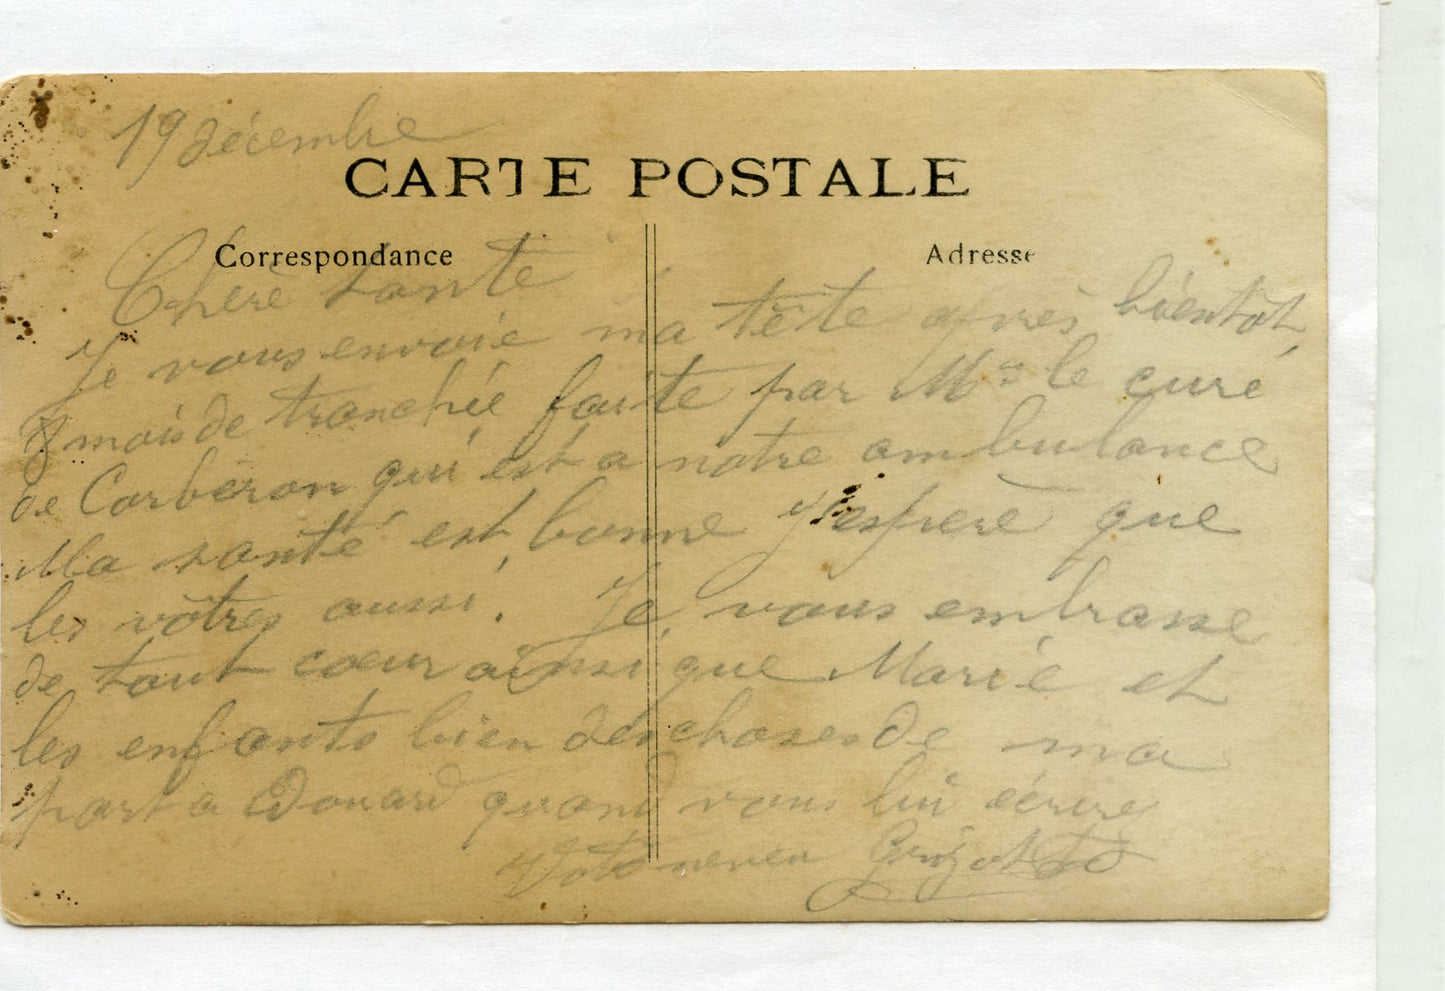 19 décembre
CARTE POSTALE
Correspondance
Adresse
Chère tante
Je vous envoie ma tête après bientôt
8 mois de tranchée faite par Mr le curé
de Corberon qui est a notre ambulance
Ma santé est bonne j'espere que
les vôtres aussi. Je vous embrasse
de tout coeur ainsi que Marie et
les enfants bien des choses de ma
part a Edouard quand vous lui écrire
Vote neveu